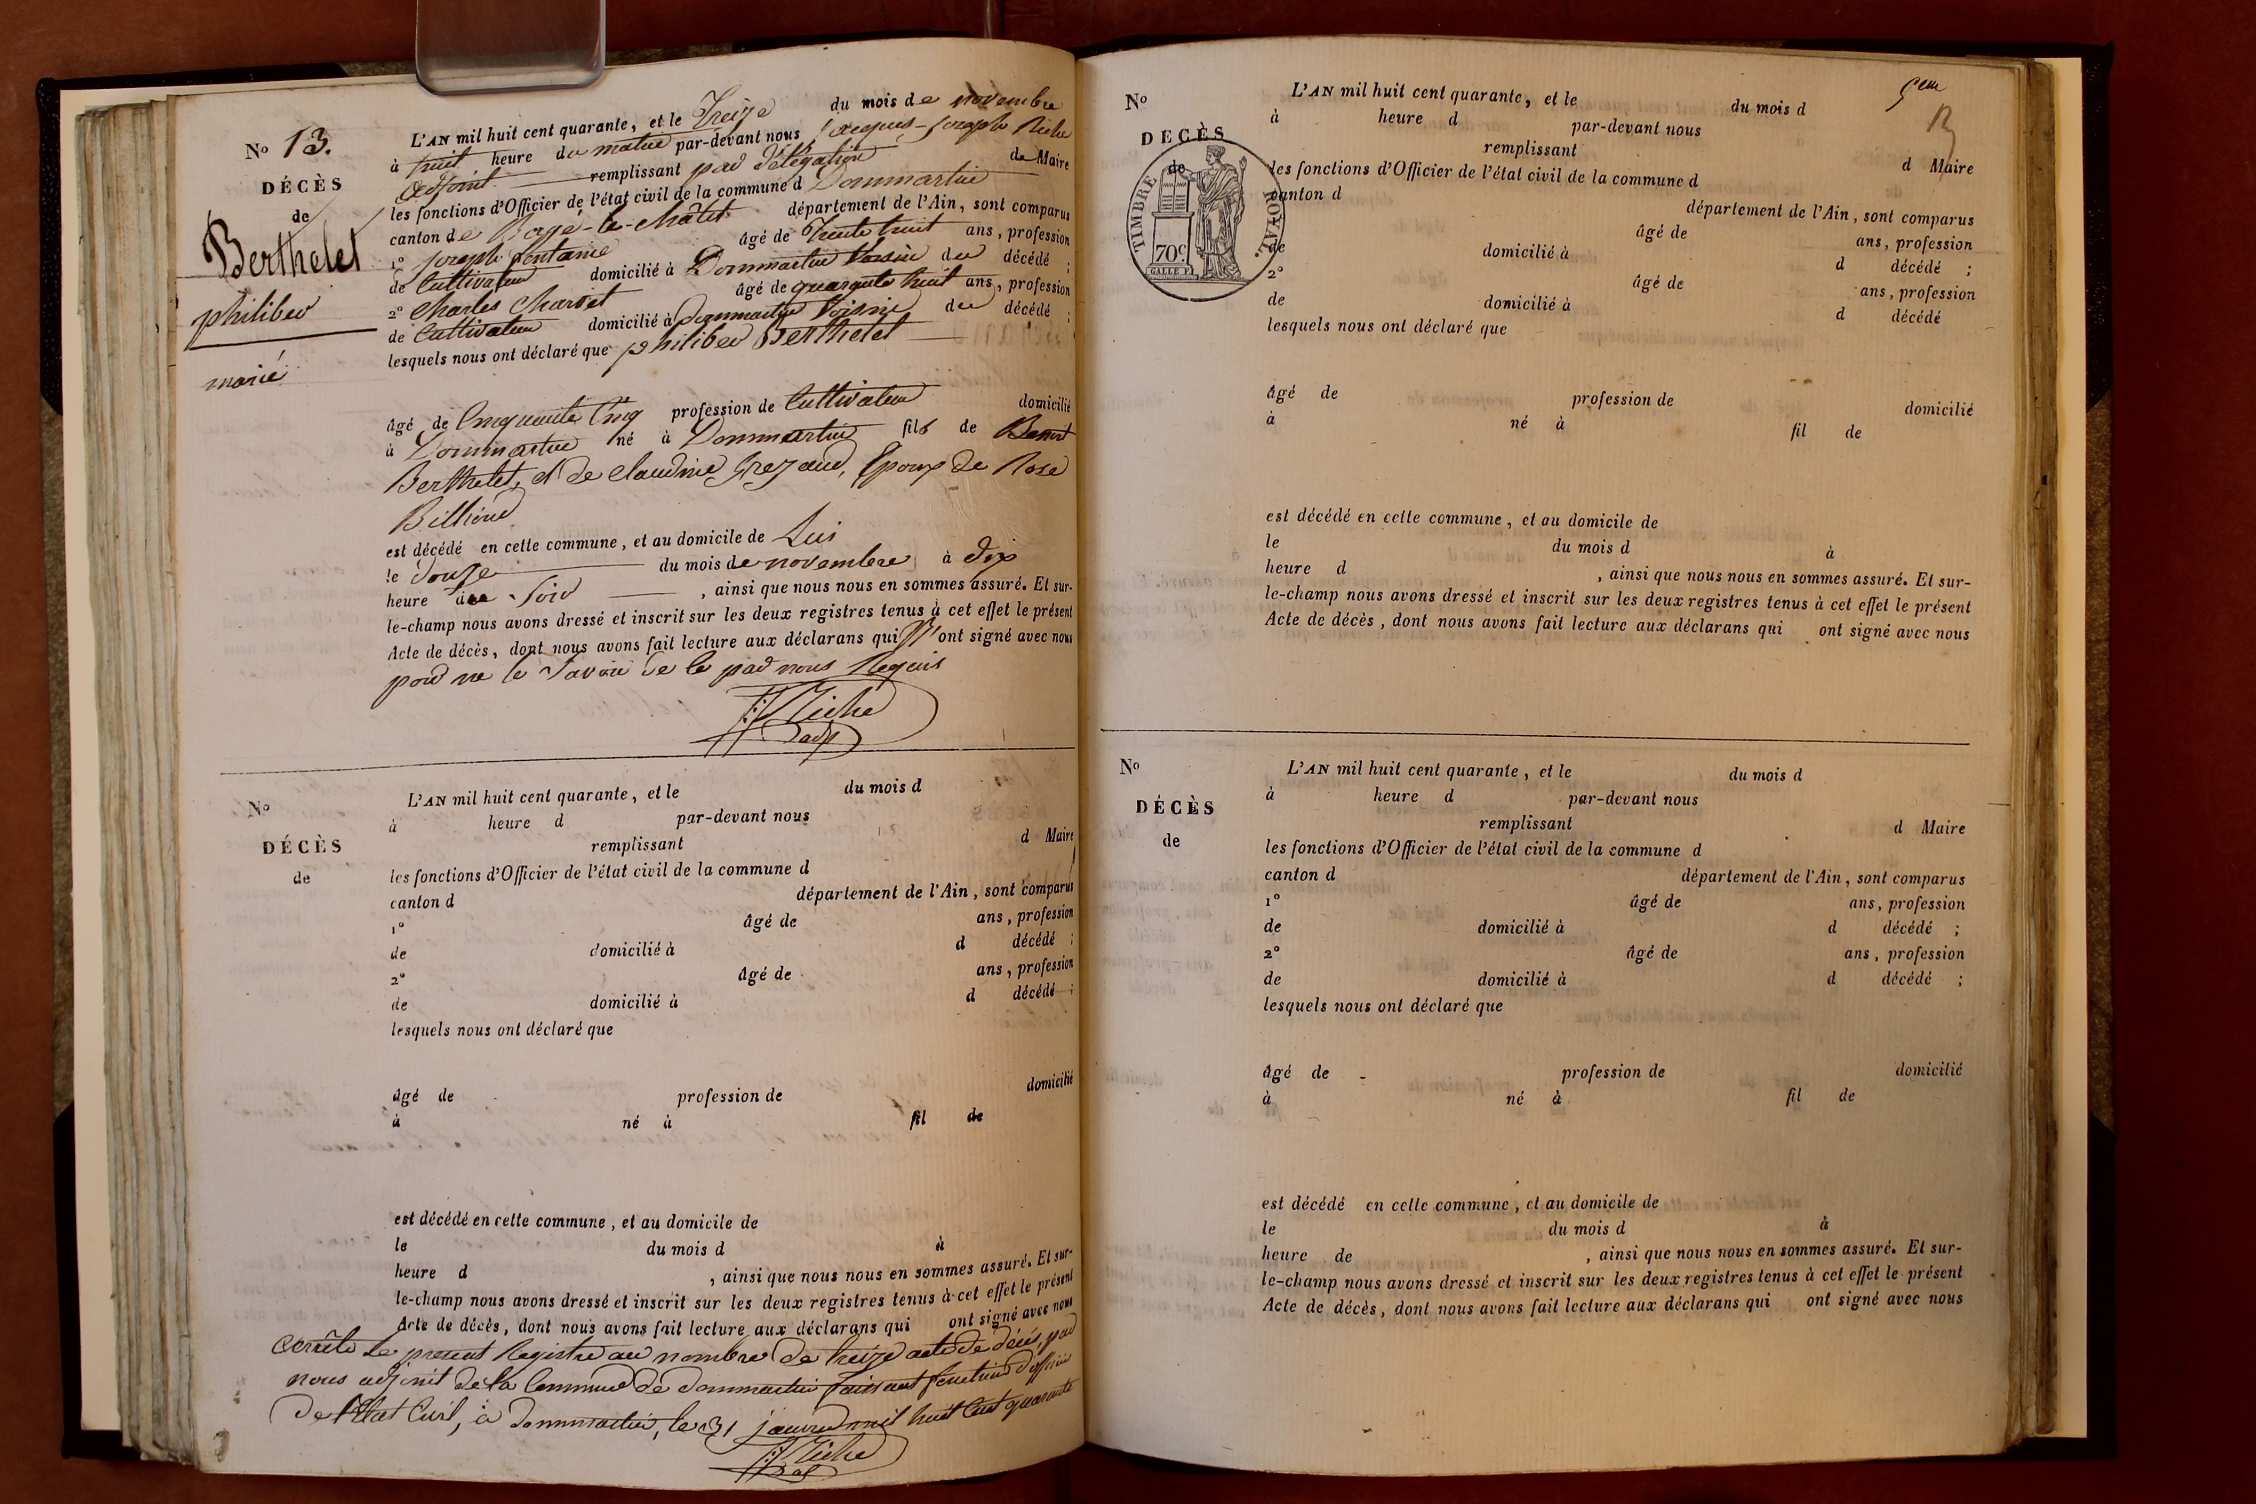 No 13.
DÉCÈS
de
Berthelet
philiber
marié
L'AN mil huit cent quarante, et le Treize du mois de novembre
à huit heure du matin par-devant nous jacques-joseph Riche
adjoint remplissant par délégation de Maire
les fonctions d'Officier de l'état civil de la commune d Dommartin
canton de Bagé-le-chatel département de l'Ain, sont comparus
1° joseph fontaine âgé de Trente huit ans, profession
de Cultivateur domicilié à Dommartin Voisin du décédé ;
2° Charles Charvet âgé de quarante huit ans, profession
de Cultivateur domicilié à Dommartin Voisin du décédé ;
lesquels nous ont déclaré que philiber Berthelet
âgé de Cinquante Cinq profession de Cultivateur domicilié
à Dommartin né à Dommartin fils de Benoit
Berthelet, et de Claudine, Epoux de Rose
est décédé en cette commune, et au domicile de Lui
le douze du mois de novembre à dix
heure du Soir , ainsi que nous nous en sommes assuré. Et sur-
le-champ nous avons dressé et inscrit sur les deux registres tenus à cet effet le présent
Acte de décès, dont nous avons fait lecture aux déclarans qui n' ont signé avec nous
pour ne le Savoir de le par nous Requis
Riche
adj
No
DÉCÈS
de
L'AN mil huit cent quarante, et le du mois d
à heure d par-devant nous
remplissant d Maire
les fonctions d'Officier de l'état civil de la commune d
canton d département de l'Ain, sont comparus
1° âgé de ans, profession
de domicilié à d décédé ;
2° âgé de ans, profession
de domicilié à d décédé ;
lesquels nous ont déclaré que
âgé de profession de domicilié
à né à fil de
est décédé en cette commune, et au domicile de
le du mois d à
heure d , ainsi que nous nous en sommes assuré. Et sur-
le-champ nous avons dressé et inscrit sur les deux registres tenus à cet effet le présent
Acte de décès, dont nous avons fait lecture aux déclarans qui ont signé avec nous
Arrêté le present Registre au nombre de treize acte de décés, par
nous adjoint de la Commune de dommartin faisant fonction d'officier
De l'Etat Civil, à dommartin, le 31 janvier mil huit Cent quarante
Riche
No
DECÈS
de
TIMBRE ROYAL.
70c
L'AN mil huit cent quarante, et le du mois d
à heure d par-devant nous
remplissant d Maire
les fonctions d'Officier de l'état civil de la commune d
canton d département de l'Ain, sont comparus
âgé de ans, profession
de domicilié à d décédé ;
2° âgé de ans, profession
de domicilié à d décédé
lesquels nous ont déclaré que
âgé de profession de domicilié
à né à fil de
est décédé en cette commune, et au domicile de
le du mois d à
heure d , ainsi que nous nous en sommes assuré. Et sur-
le-champ nous avons dressé et inscrit sur les deux registres tenus à cet effet le présent
Acte de décès, dont nous avons fait lecture aux déclarans qui ont signé avec nous
No
DÉCÈS
de
L'AN mil huit cent quarante, et le du mois d
à heure d par-devant nous
remplissant d Maire
les fonctions d'Officier de l'état civil de la commune d
canton d département de l'Ain, sont comparus
1° âgé de ans, profession
de domicilié à d décédé ;
2° âgé de ans, profession
de domicilié à d décédé ;
lesquels nous ont déclaré que
âgé de profession de domicilié
à né à fil de
est décédé en cette commune, et au domicile de
le du mois d à
heure de , ainsi que nous nous en sommes assuré. Et sur-
le-champ nous avons dressé et inscrit sur les deux registres tenus à cet effet le présent
Acte de décès, dont nous avons fait lecture aux déclarans qui ont signé avec nous